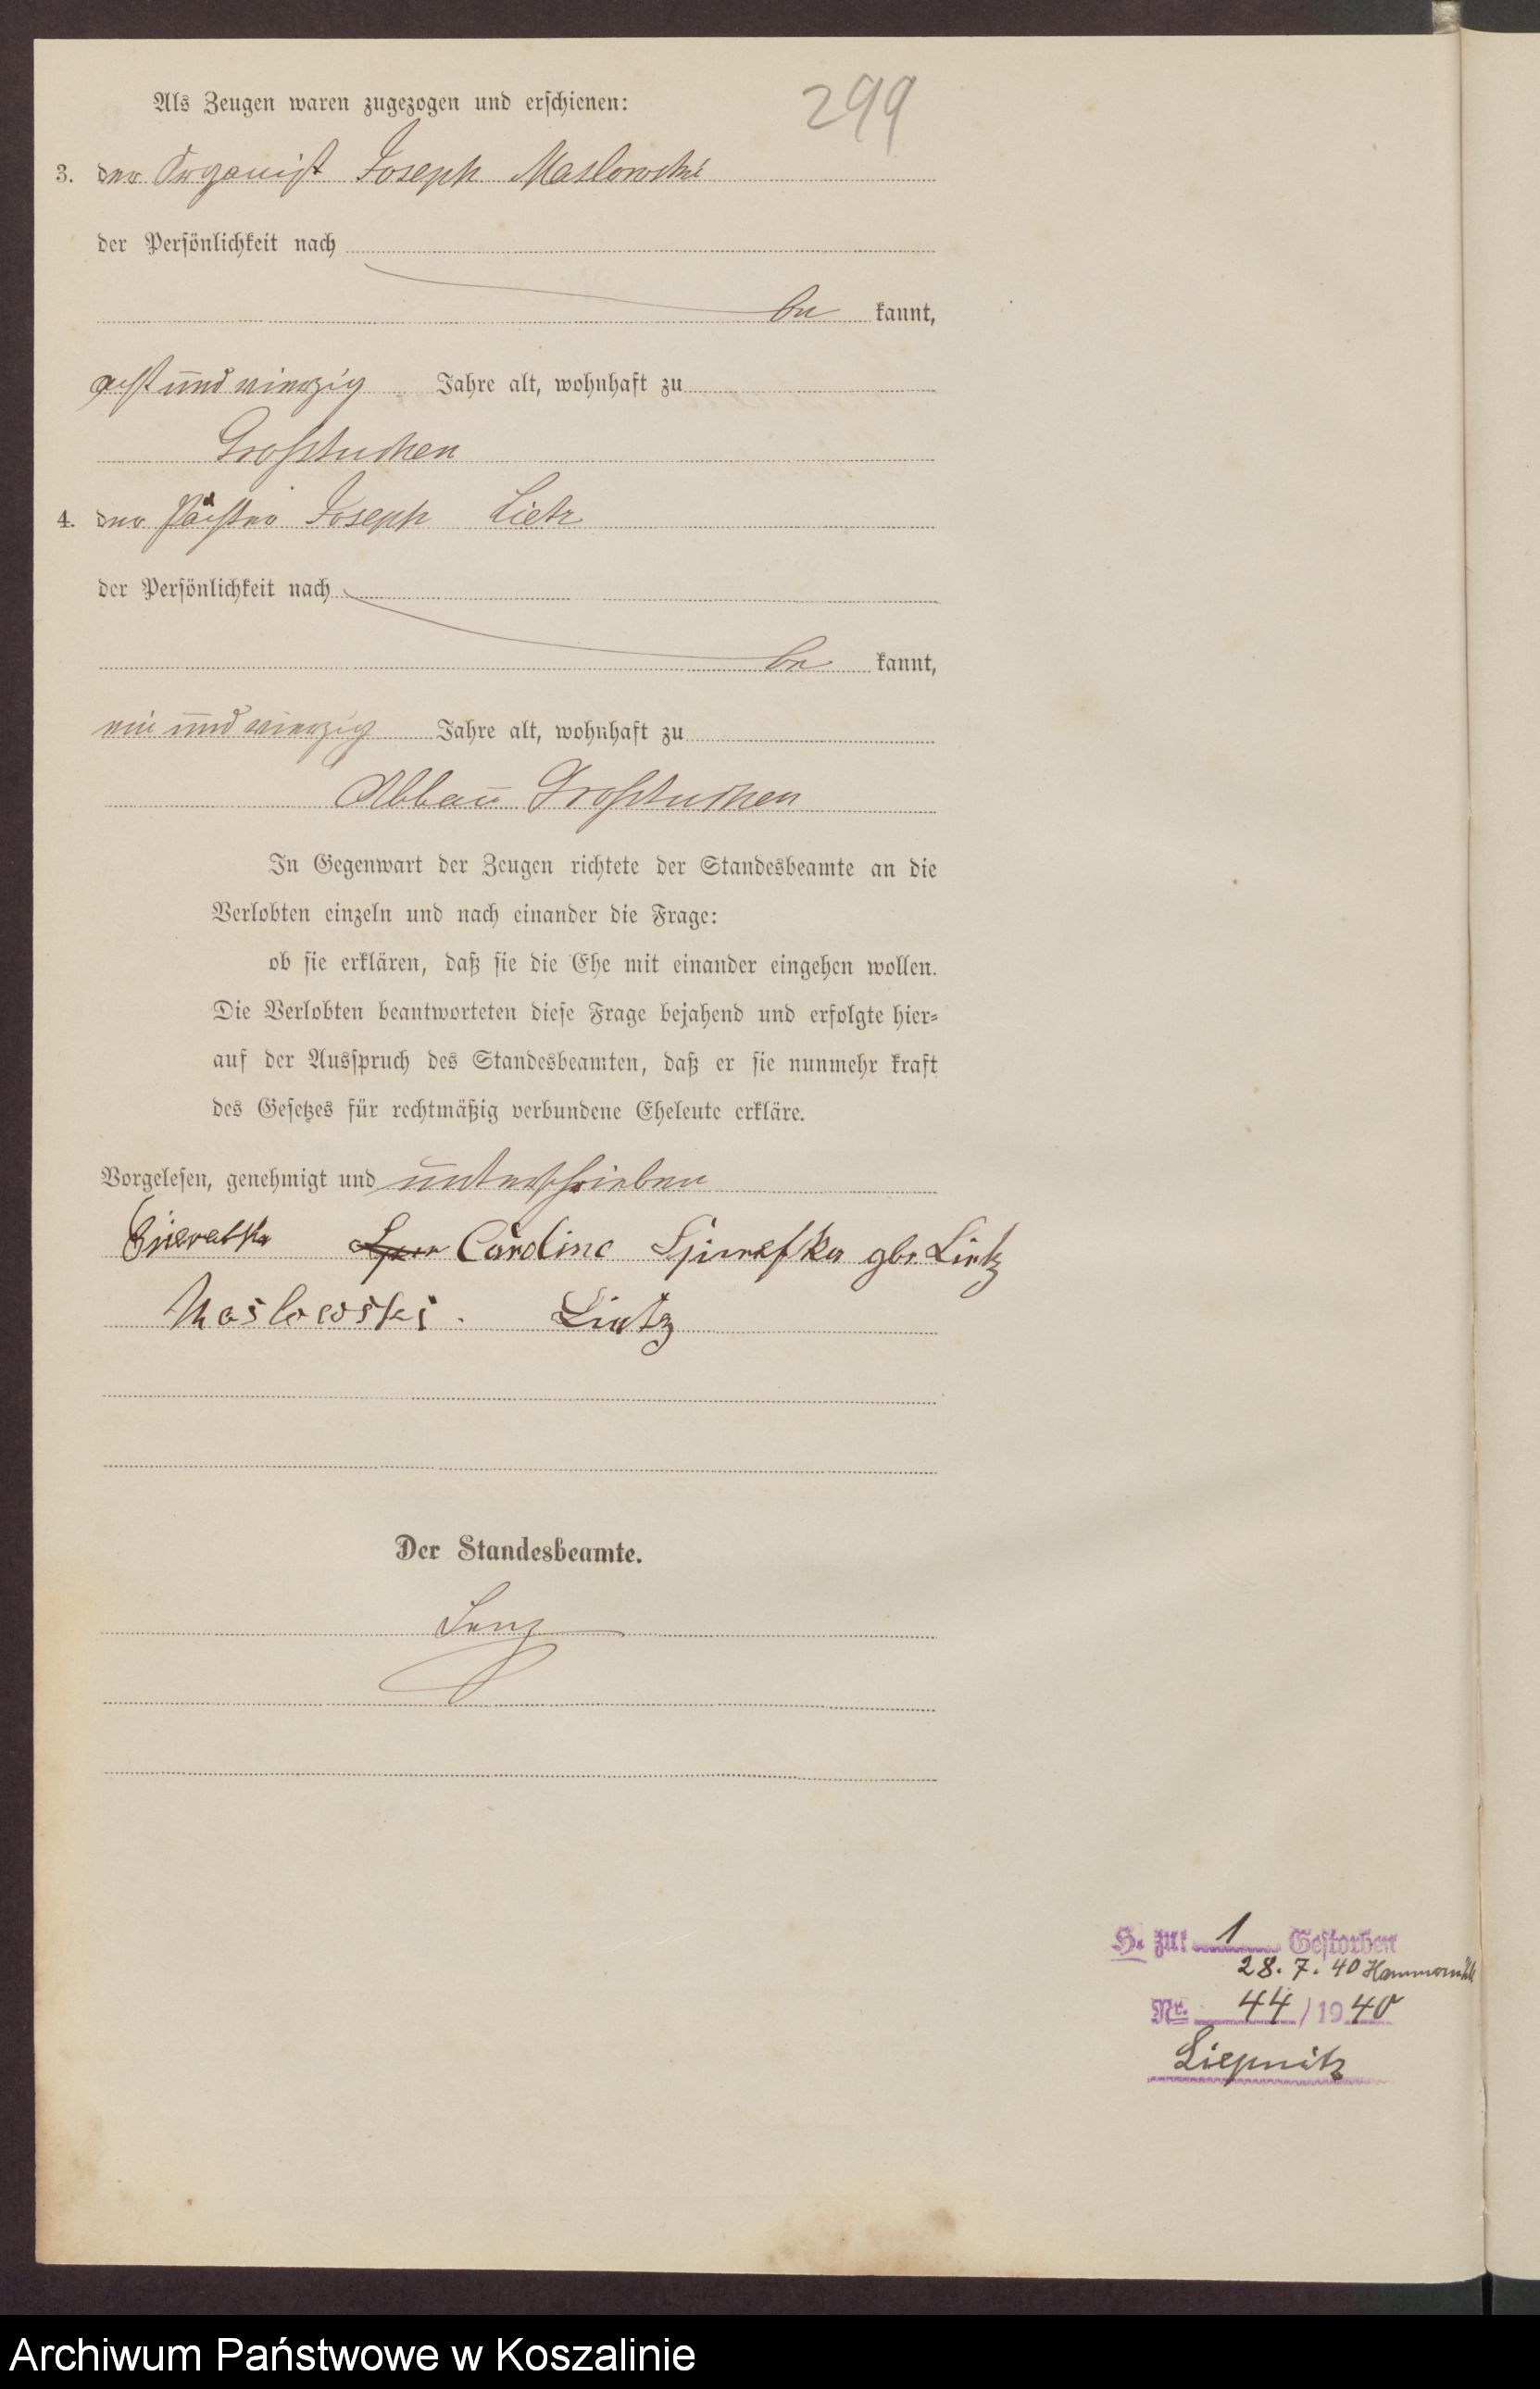 299
Als Zeugen waren zugezogen und erschienen:
3. der Organist Joseph Maslowski
der Persönlichkeit nach
be kannt,
acht und vierzig Jahre alt, wohnhaft zu
Großtuchen
4. der Pächter Joseph Lietz
der Persönlichkeit nach
be kannt,
ein und vierzig Jahre alt, wohnhaft zu
Abbau Großtuchen
In Gegenwart der Zeugen richtete der Standesbeamte an die
Verlobten einzeln und nach einander die Frage:
ob sie erklären, daß sie die Ehe mit einander eingehen wollen.
Die Verlobten beantworteten diese Frage bejahend und erfolgte hier-
auf der Ausspruch des Standesbeamten, daß er sie nunmehr kraft
des Gesetzes für rechtmäßig verbundene Eheleute erkläre.
Vorgelesen, genehmigt und unterschrieben
Carolina gbr. Lietz
Maslowski. Lietz
Der Standesbeamte.
Lenz
H. zu: 1 Gestorben
28. 7. 40 Hammermühle
Nr. 44/1940
Liepnitz
Archiwum Państwowe w Koszalinie